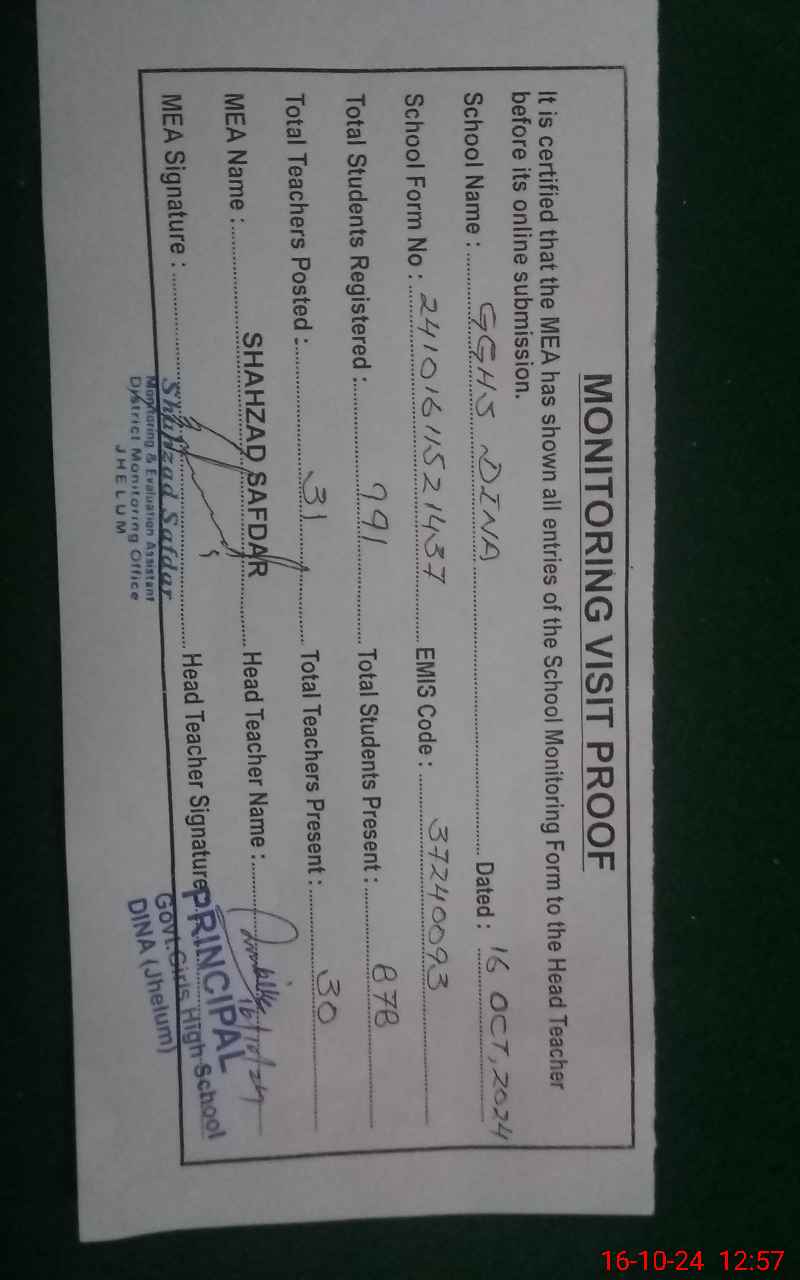 MONITORING VISIT PROOF
It is certified that the MEA has shown all entries of the School Monitoring Form to the Head Teacher
before its online submission.
School Name : GGHS DINA Dated : 16 OCT, 2024
School Form No : 24101611521437 EMIS Code : 37240093
Total Students Registered : 991 Total Students Present : 878
Total Teachers Posted : 31 Total Teachers Present : 30
MEA Name : SHAHZAD SAFDAR Head Teacher Name :
16/10/24
MEA Signature : Head Teacher Signature
Shahzad Safdar
Monitoring & Evaluation Assistant
District Monitoring Office
JHELUM
PRINCIPAL
Govt. Girls High School
DINA (Jhelum)
16-10-24 12:57